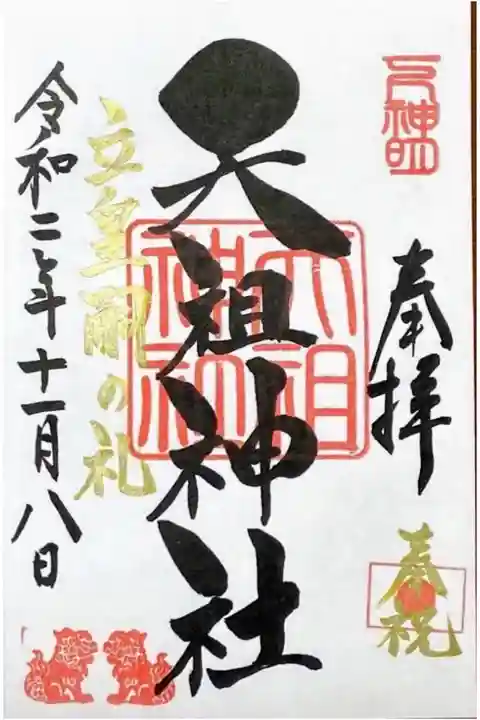 奉拝
奉祝
天祖神社
天祖
神社
立皇嗣の礼
令和二年十一月八日